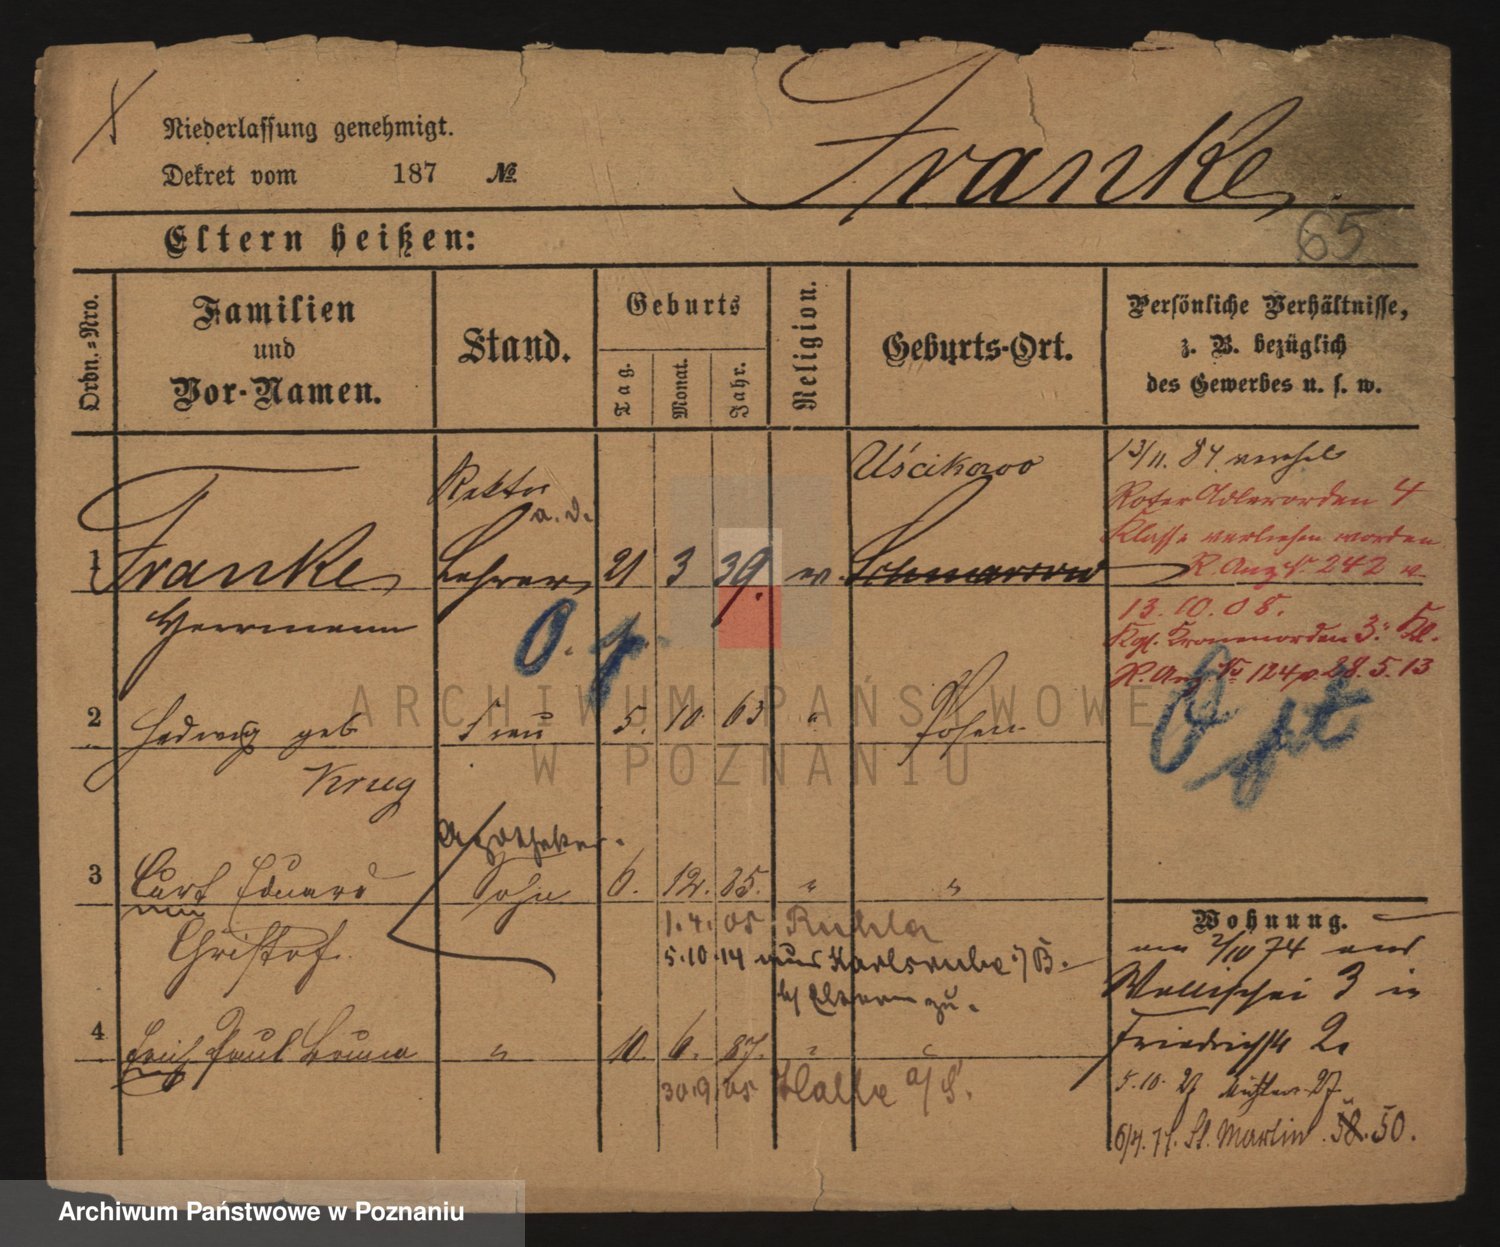 Niederlassung genehmigt.
Dekret vom 187 №
Franke.
65
Eltern heißen:
Ordn.=Nro.
Familien
und
Vor-Namen.
Stand.
Geburts
Tag.
Monat.
Jahr.
Religion.
Geburts-Ort.
Persönliche Verhältnisse,
z. B. bezüglich
des Gewerbes u. s. w.
Rektor
a. D.
Uścikowo
13/11. 84
Roter Adlerorden 4
Klasse verliehen worden
1 Franke Lehrer 21 3 39. ev. Schmarsow
R. Anz. 242 v.
Herrmann
13. 10. 08.
Kgl. Kronenorden 3. Kl.
R. Anz. No 124 v. 28. 5. 13
2 Hedwig geb Frau 5. 10. 63 " Posen
Krug
Apotheker.
3 Curt Eduard Sohn 6. 12. 85. " "
Christof.
1. 4. 05 Ruhla
5. 10. 14 aus Karlsruhe i/B.
b/ Eltern zu.
4 Erich Paul Bruno " 10. 6. 87. " "
30. 9. 05 Halle a/S.
Wohnung.
2/10 74
Wallischei 3 in
Friedrichstr 2.
5. 10. 27.
6/4. 77. St. Martin 58. 50.
ARCHIWUM PAŃSTWOWE
W POZNANIU
Archiwum Państwowe w Poznaniu